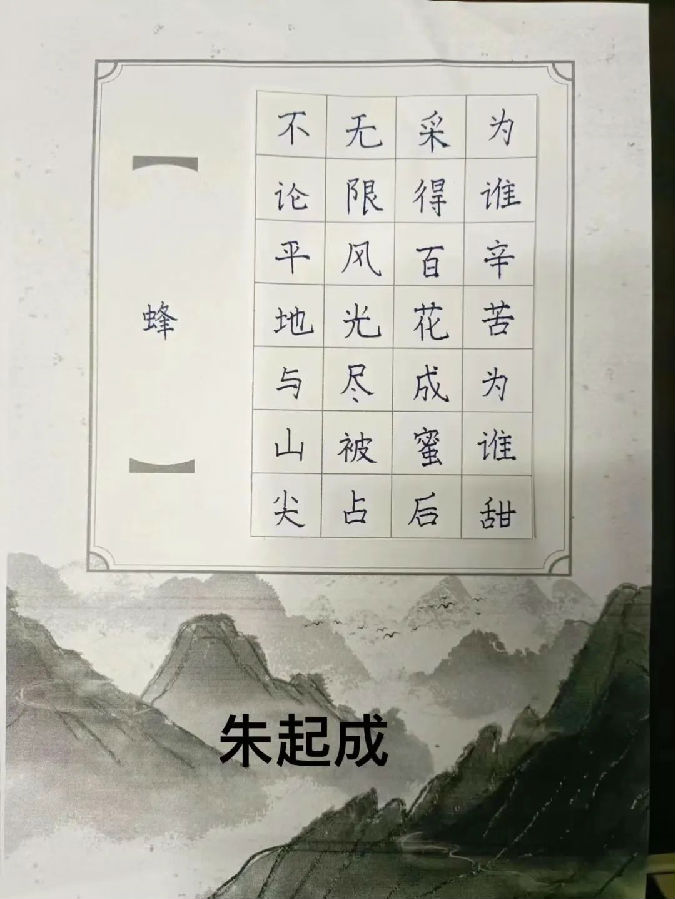 蜂
不论平地与山尖
无限风光尽被占
采得百花成蜜后
为谁辛苦为谁甜
朱起成